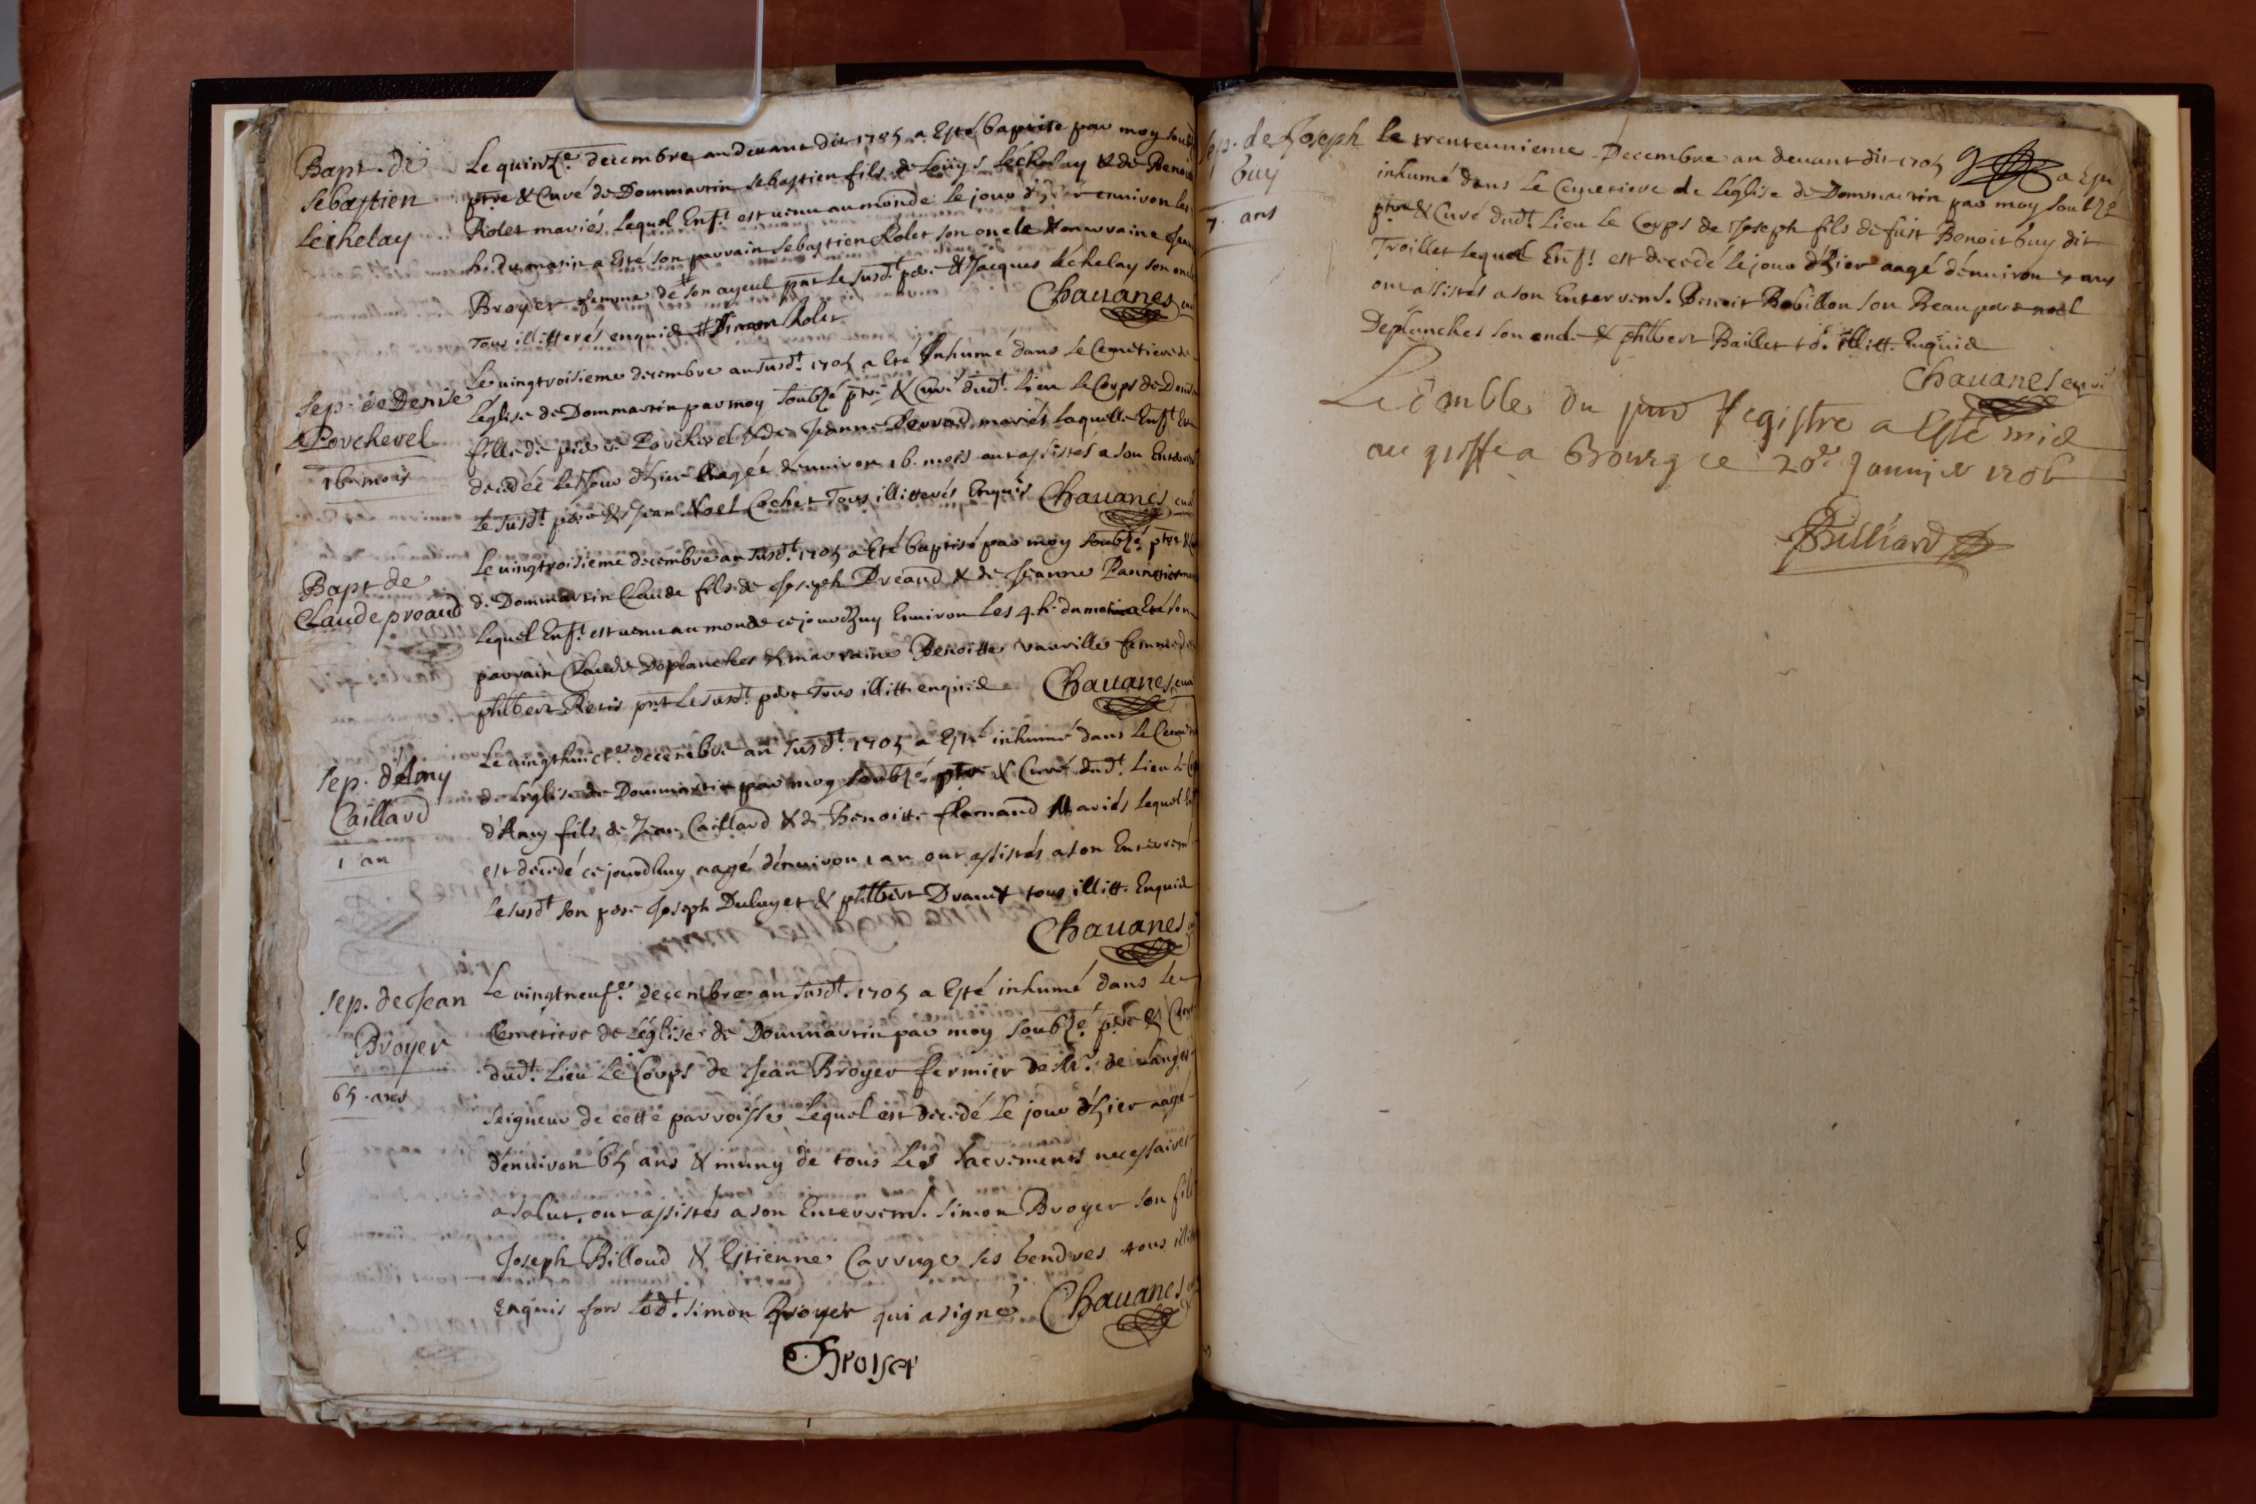 Bapt. de
Sebastien
Lechelay
Le quinz.e decembre an devant dit 1705 a esté baptisé par moy soub
ptre & Curé de Dommartin Sebastien fils de Louys Léchelay & de Benoi
Rolet mariés, lequel Enf.t est venu au monde le jour d'hier environ les
h. du matin a esté son parrain Sebastien Rolet son oncle & marraine Jean
Broyer femme de son ayeul pnt le susd.t pere & Jacques Léchelay son oncl
Tous illitterés enquis # Simon Rolet
Chavanes curé
Sep. de Denise
Porcherel
16 mois
Le vingtroisieme decembre an susd.t 1705 a esté Inhumé dans le Cemetiere de
l'église de Dommartin par moy soubz.é ptre & Curé dud.t Lieu le Corps de Denise
fille de pierre Porcherel & de Jeanne Perraud mariés laquelle Enf.t est
decedée le Jour d'hier aagée d'environ 16. mois ont assistés a son Enterrem
le susd.t pere & Jean Noel Cochet Tous illitterés Enquis Chavanes curé
Bapt de
Claude proaud
Le vingtroisieme decembre an susd.t 1705 a esté baptisé par moy soubz.é ptre &
de Dommartin Claude fils de Joseph Proaud & de Jeanne
lequel Enf.t est venu au monde ce jourd'huy Environ les 4. h. du matin a Esté son
parrain Claude Deplanches & marraine Benoitte femme de
philbert pnt le susd.t pere Tous illitt. enquis Chavanes curé
Sep. d'Amy
Caillard
1 an
Le vingthuict.e decembre an susd.t 1705 a Esté inhumé dans le Cemeti
de l'église de Dommartin par moy soubz.é ptre & Curé dud.t Lieu le C
d'Amy fils de Jean Caillard & de Benoitte flamand Mariés lequel Enf
est decedé ce jourd'huy aagé d'environ 1 an ont assistés a son Enterrem
le susd.t son pere Joseph & philbert tous illitt. Enquis
Chavanes
Sep. de Jean
Broyer
65. ans
Le vingtneuf.e decembre an susd.t 1705 a Esté inhumé dans le
Cemetiere de l'église de Dommartin par moy soubz.é ptre & Curé
dud.t Lieu le Corps de Jean Broyer fermier de Mr. de
Seigneur de cette parroisse lequel est decedé le jour d'hier aagé
d'environ 65 ans & muny de tous les sacrements necessaires
a salut, ont assistés a son Enterrem.t Simon Broyer son fils
Joseph Billoud & Estienne Carruge ses bendres tous illitt
enquis fors led.t Simon Broyer qui a signé Chavanes
S. Broiser
Sep. de Joseph
buy
7. ans
le trenteunieme Decembre an devant dit 1705 a Esté
inhumé dans le Cemetiere de l'église de Dommartin par moy soubz.é
ptre & Curé dud.t Lieu le Corps de Joseph fils de fust Benoit buy dit
Troillet lequel Enf.t est decedé le jour d'hier aagé d'environ 7 ans
ont assistés a son Enterrem.t Benoit Bobillon son Beau pere noel
Deplanches son oncle & philbert Baillet t.s illitt. Enquis
Chavanes curé
Le double du pnt Registre a Esté mis
au greffe a Bourg ce 20e Janvier 1706
Billiard